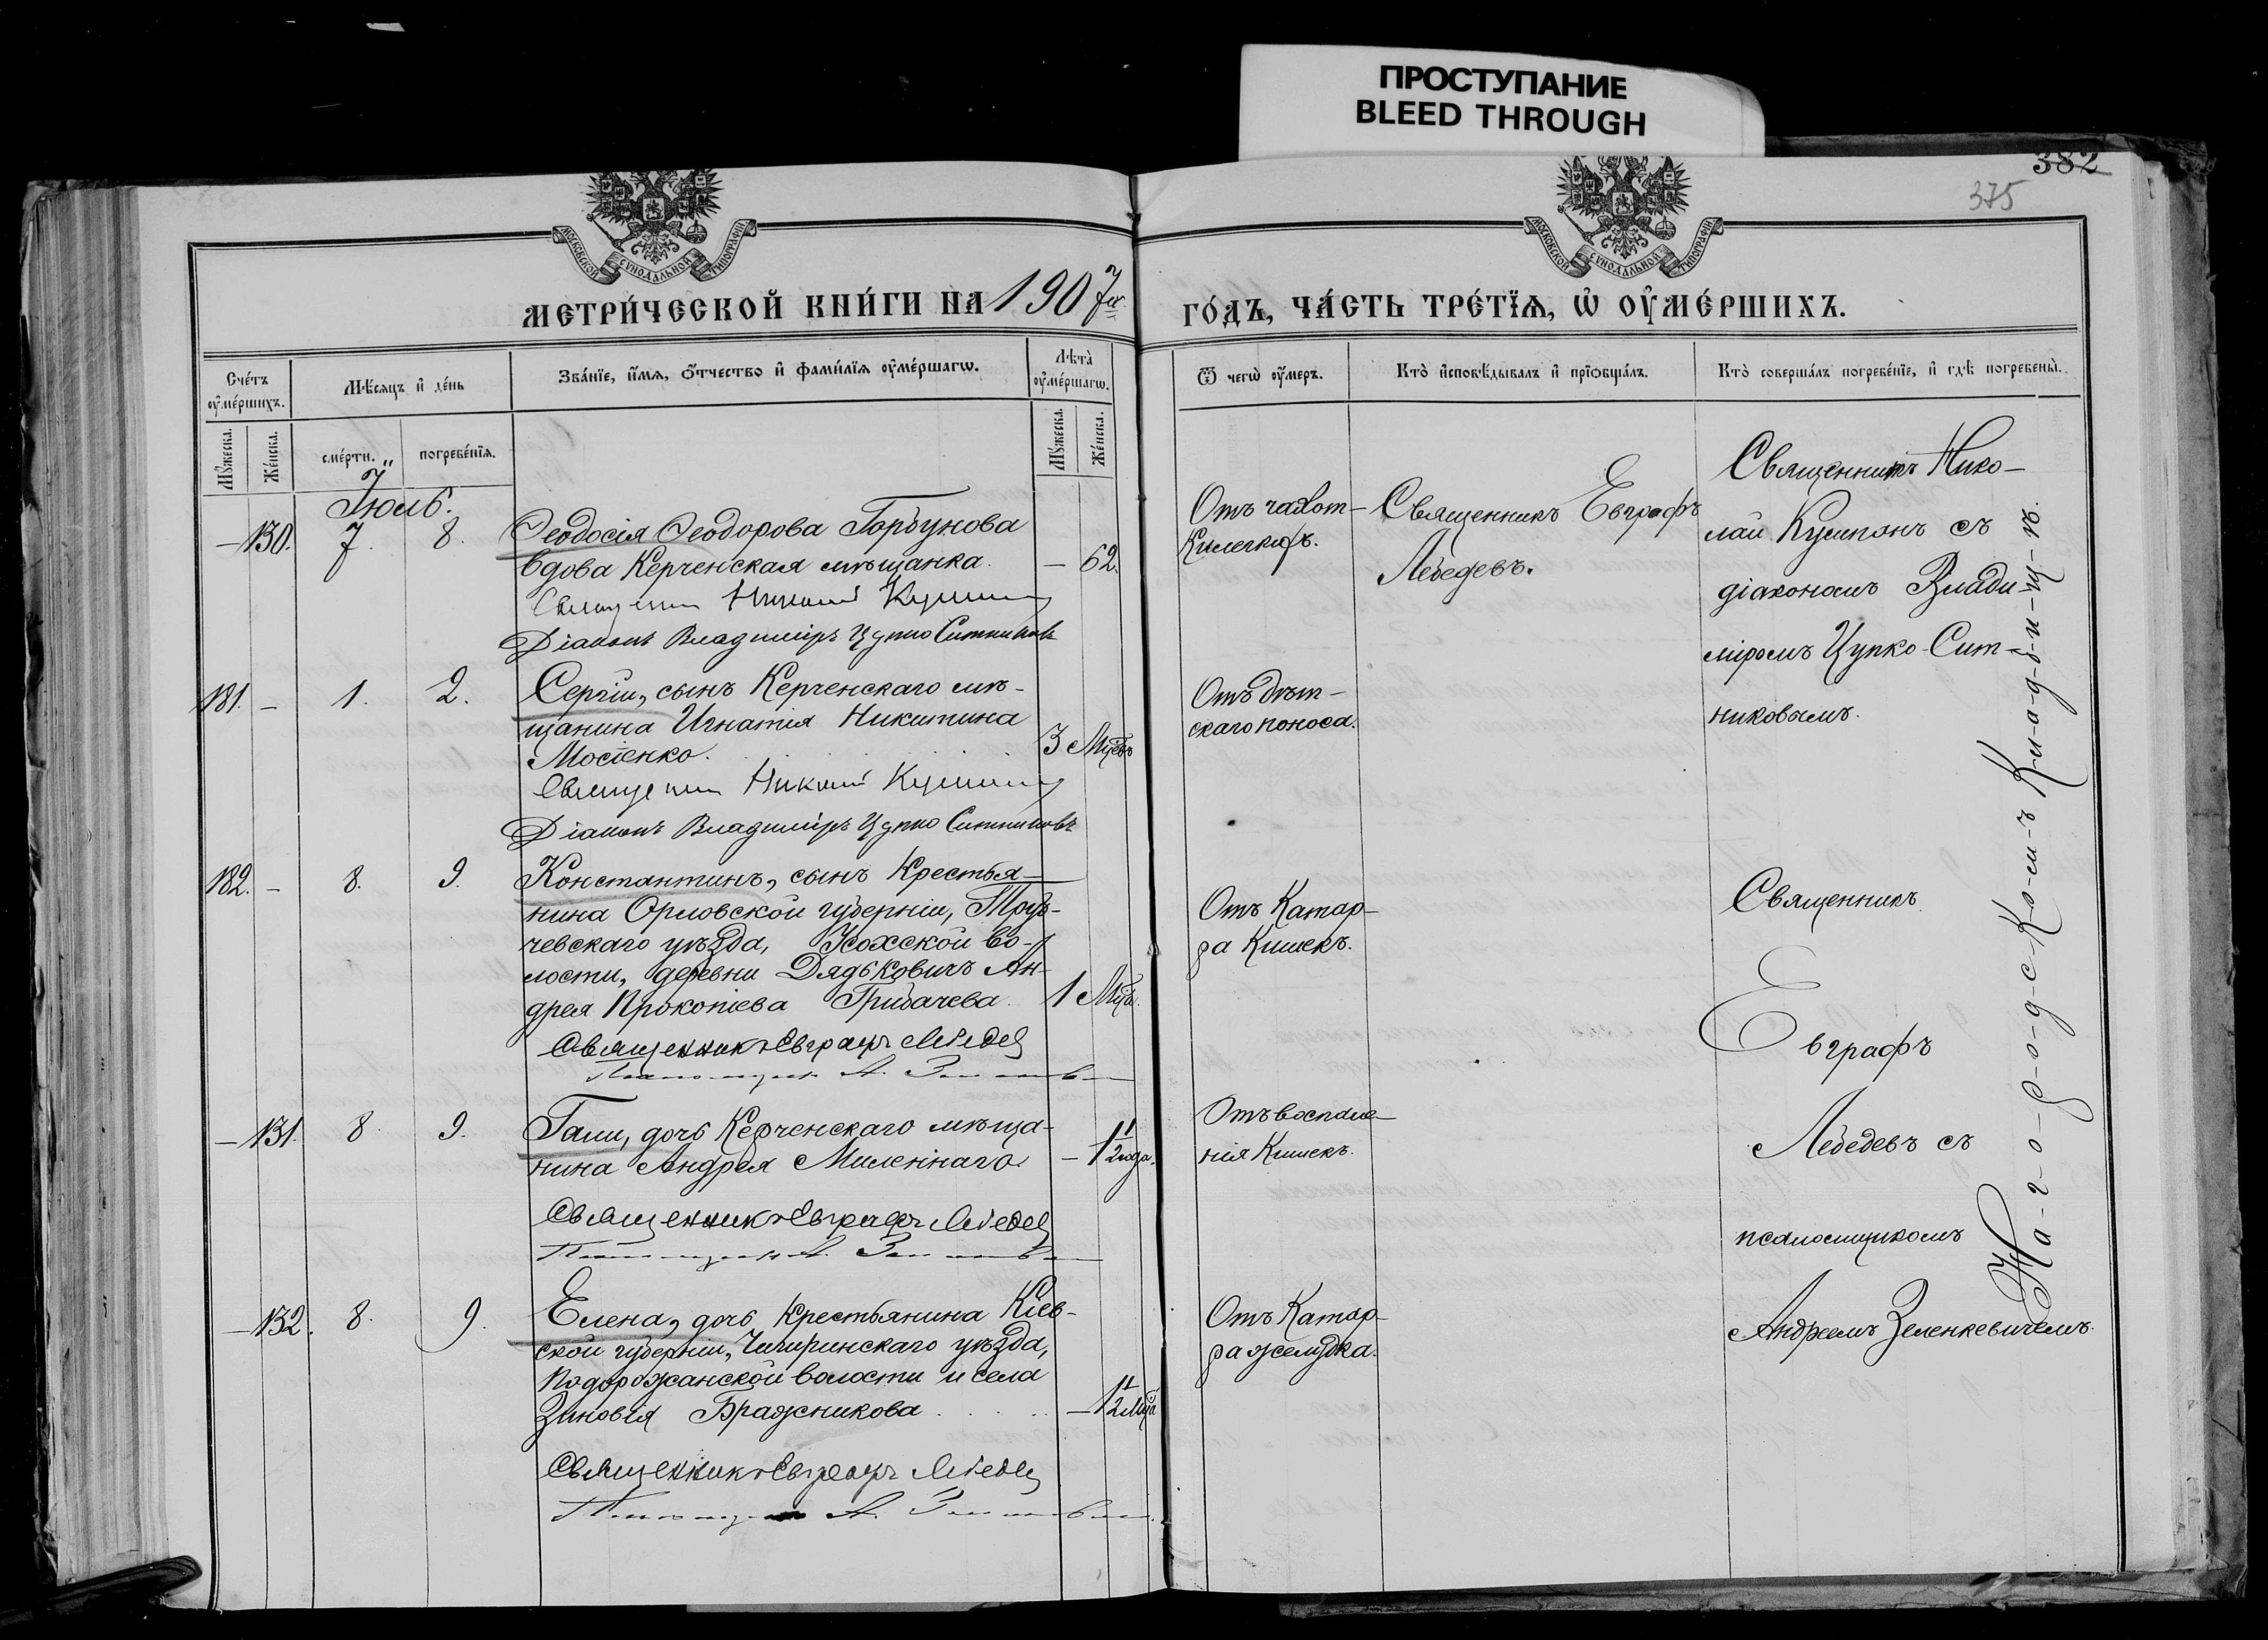 ПРОСТУПАНИЕ
BLEED THROUGH
382
375
МОСКОВСКОЙ СУНОДАЛЬНОЙ ТИПОГРАФІИ
МОСКОВСКОЙ СУНОДАЛЬНОЙ ТИПОГРАФІИ
МЕТРИ́ЧЕСКОЙ КНИ́ГИ НА 1907 го
ГО́ДЪ, ЧА́СТЬ ТРЕ́ТЇѦ, Ѡ҆ ОУ҆МЕ́РШИХЪ.
Сче́тъ оу҆ме́ршихъ.
Мѣ́сяцъ и҆ де́нь
Зва́нїе, и҆́мѧ, ѻ҆́тчество и҆ фами́лїѧ оу҆ме́ршагѡ.
Лѣ̀та оу҆ме́ршагѡ.
Ѿ чегѡ̀ оу҆́меръ.
Кто̀ и҆сповѣ́дывалъ и҆ прїѡбща́лъ.
Кто̀ соверша́лъ погребе́нїе, и҆ гдѣ̀ погребены̀.
Му́жеска.
Же́нска.
сме́рти.
погребе́нїѧ.
Му́жеска.
Же́нска.
Іюль.
— 130. 7. 8.
Ѳеодосія Ѳеодорова Горбунова
вдова Керченская мѣщанка. — 62.
Священник Николай Кушпин
Діаконъ Владиміръ Цупко Ситниковъ
Отъ чахот-
Ки легкихъ.
Священникъ Евграфъ
Лебедевъ.
Священникъ Нико-
лай Кушпанъ съ
діакономъ Влади-
міромъ Цупко-Сит-
никовымъ.
181. — 1. 2.
Сергій, сынъ Керченскаго мѣ-
щанина Игнатія Никитина
Мосіенко. 3 Мцѣвъ
Священник Николай Кушпин
Діаконъ Владиміръ Цупко Ситниковъ
Отъ дѣт-
скаго поноса.
182. — 8. 9.
Константинъ, сынъ Крестья-
нина Орловской губерніи, Труб-
чевскаго уѣзда, Усохской во-
лости, деревни Дядьковичъ Ан-
дрея Прокопіева Грибачева. 1 Мцъ.
Священникъ Евграфъ Лебедев
Отъ Катар-
ра Кишекъ.
Священникъ
Евграфъ
Лебедевъ съ
псаломщикомъ
Андреемъ Зеленкевичемъ.
— 131. 8. 9.
Гали, дочь Керченскаго мѣща-
нина Андрея Миленінаго. — 1 1/2 года.
Священникъ Евграфъ Лебедев
Отъ воспале-
нія Кишекъ.
— 132. 8. 9.
Елена, дочь Крестьянина Кіев-
ской губерніи, Чигиринскаго уѣзда,
Подорожанской волости и села
Зиновія Бражникова — 1 1/2 Мца
Священникъ Евграфъ Лебедев
Отъ Катар-
ра желудка.
На городском Кладбищѣ.